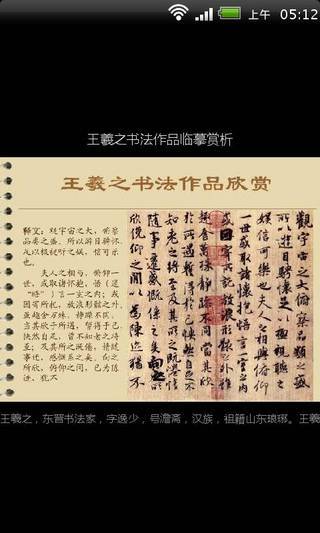 上午 05:12
王羲之书法作品临摹赏析
王羲之书法作品欣赏
释文：观宇宙之大，俯察
品类之盛。所以游目骋怀，
足以极视听之娱，信可乐
也。
夫人之相与，俯仰一
世，或取诸怀抱，悟（通
“晤”）言一室之内；或
因寄所托，放浪形骸之外。
虽趣舍万殊，静躁不同，
当其欣于所遇，暂得于己，
快然自足，曾不知老之将
至，及其所之既倦，情随
事迁，感慨系之矣，向之
所欣，俯仰之间，已为陈
迹，犹不
觀宇宙之大俯察品類之盛
所以遊目騁懷足以極視聽之
娛信可樂也夫人之相與俯仰
一世或取諸懷抱悟言一室之內
或因寄所託放浪形骸之外雖
趣舍萬殊靜躁不同當其欣
於所遇暫得於己快然自足不
知老之將至及其所之既惓情
隨事遷感慨係之矣向之所
欣俛仰之閒以為陳迹猶不
王羲之，东晋书法家，字逸少，号澹斋，汉族，祖籍山东琅琊。王羲